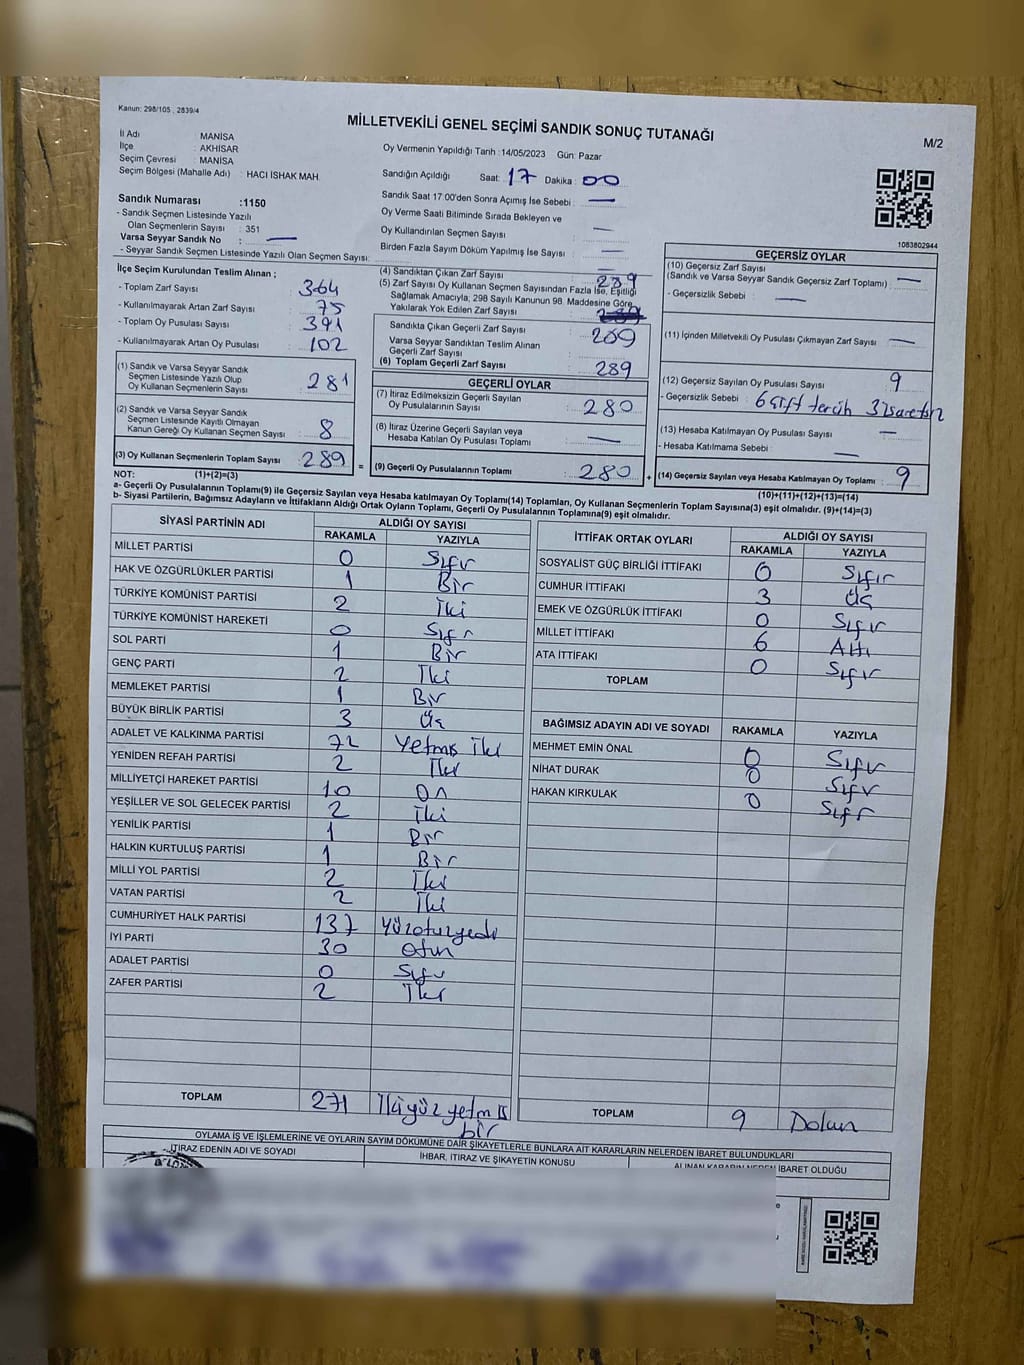 Kanun: 298/105 , 2839/4
MİLLETVEKİLİ GENEL SEÇİMİ SANDIK SONUÇ TUTANAĞI
M/2
İl Adı MANİSA
İlçe : AKHİSAR
Seçim Çevresi : MANİSA
Seçim Bölgesi (Mahalle Adı) : HACI İSHAK MAH.
Oy Vermenin Yapıldığı Tarih :14/05/2023 Gün: Pazar
Sandığın Açıldığı Saat: 17 Dakika : 00
Sandık Saat 17:00'den Sonra Açımış İse Sebebi : —
Oy Verme Saati Bitiminde Sırada Bekleyen ve
Oy Kullandırılan Seçmen Sayısı : —
Birden Fazla Sayım Döküm Yapılmış İse Sayısı : —
Sandık Numarası :1150
- Sandık Seçmen Listesinde Yazılı
Olan Seçmenlerin Sayısı : 351
Varsa Seyyar Sandık No : —
- Seyyar Sandık Seçmen Listesinde Yazılı Olan Seçmen Sayısı: —
1083802944
İlçe Seçim Kurulundan Teslim Alınan ;
- Toplam Zarf Sayısı : 364
- Kullanılmayarak Artan Zarf Sayısı : 75
- Toplam Oy Pusulası Sayısı : 391
- Kullanılmayarak Artan Oy Pusulası : 102
(1) Sandık ve Varsa Seyyar Sandık
Seçmen Listesinde Yazılı Olup
Oy Kullanan Seçmenlerin Sayısı : 281
(2) Sandık ve Varsa Seyyar Sandık
Seçmen Listesinde Kayıtlı Olmayan
Kanun Gereği Oy Kullanan Seçmen Sayısı : 8
(3) Oy Kullanan Seçmenlerin Toplam Sayısı : 289 =
(4) Sandıktan Çıkan Zarf Sayısı : 289
(5) Zarf Sayısı Oy Kullanan Seçmen Sayısından Fazla İse, Eşitliği
Sağlamak Amacıyla; 298 Sayılı Kanunun 98. Maddesine Göre
Yakılarak Yok Edilen Zarf Sayısı :
Sandıkta Çıkan Geçerli Zarf Sayısı : 289
Varsa Seyyar Sandıktan Teslim Alınan
Geçerli Zarf Sayısı :
(6) Toplam Geçerli Zarf Sayısı : 289
GEÇERLİ OYLAR
(7) İtiraz Edilmeksizin Geçerli Sayılan
Oy Pusulalarının Sayısı : 280
(8) İtiraz Üzerine Geçerli Sayılan veya
Hesaba Katılan Oy Pusulası Toplamı : —
(9) Geçerli Oy Pusulalarının Toplamı : 280 +
GEÇERSİZ OYLAR
(10) Geçersiz Zarf Sayısı
(Sandık ve Varsa Seyyar Sandık Geçersiz Zarf Toplamı) : —
- Geçersizlik Sebebi : —
(11) İçinden Milletvekili Oy Pusulası Çıkmayan Zarf Sayısı : —
(12) Geçersiz Sayılan Oy Pusulası Sayısı : 9
- Geçersizlik Sebebi : 6 çift tercih 3 işaretsiz
(13) Hesaba Katılmayan Oy Pusulası Sayısı : —
- Hesaba Katılmama Sebebi : —
(14) Geçersiz Sayılan veya Hesaba Katılmayan Oy Toplamı : 9
NOT: (1)+(2)=(3)
(10)+(11)+(12)+(13)=(14)
a- Geçerli Oy Pusulalarının Toplamı(9) ile Geçersiz Sayılan veya Hesaba katılmayan Oy Toplamı(14) Toplamları, Oy Kullanan Seçmenlerin Toplam Sayısına(3) eşit olmalıdır. (9)+(14)=(3)
b- Siyasi Partilerin, Bağımsız Adayların ve İttifakların Aldığı Ortak Oyların Toplamı, Geçerli Oy Pusulalarının Toplamına(9) eşit olmalıdır.
SİYASİ PARTİNİN ADI ALDIĞI OY SAYISI
RAKAMLA YAZIYLA
MİLLET PARTİSİ 0 Sıfır
HAK VE ÖZGÜRLÜKLER PARTİSİ 1 Bir
TÜRKİYE KOMÜNİST PARTİSİ 2 İki
TÜRKİYE KOMÜNİST HAREKETİ 0 Sıfır
SOL PARTİ 1 Bir
GENÇ PARTİ 2 İki
MEMLEKET PARTİSİ 1 Bir
BÜYÜK BİRLİK PARTİSİ 3 Üç
ADALET VE KALKINMA PARTİSİ 72 Yetmiş İki
YENİDEN REFAH PARTİSİ 2 İki
MİLLİYETÇİ HAREKET PARTİSİ 10 On
YEŞİLLER VE SOL GELECEK PARTİSİ 2 İki
YENİLİK PARTİSİ 1 Bir
HALKIN KURTULUŞ PARTİSİ 1 Bir
MİLLİ YOL PARTİSİ 2 İki
VATAN PARTİSİ 2 İki
CUMHURİYET HALK PARTİSİ 137 Yüzotuzyedi
İYİ PARTİ 30 Otuz
ADALET PARTİSİ 0 Sıfır
ZAFER PARTİSİ 2 İki
TOPLAM 271 İkiyüz yetmiş
bir
İTTİFAK ORTAK OYLARI ALDIĞI OY SAYISI
RAKAMLA YAZIYLA
SOSYALİST GÜÇ BİRLİĞİ İTTİFAKI 0 Sıfır
CUMHUR İTTİFAKI 3 Üç
EMEK VE ÖZGÜRLÜK İTTİFAKI 0 Sıfır
MİLLET İTTİFAKI 6 Altı
ATA İTTİFAKI 0 Sıfır
TOPLAM
BAĞIMSIZ ADAYIN ADI VE SOYADI RAKAMLA YAZIYLA
MEHMET EMİN ÖNAL 0 Sıfır
NİHAT DURAK 0 Sıfır
HAKAN KIRKULAK 0 Sıfır
TOPLAM 9 Dokuz
OYLAMA İŞ VE İŞLEMLERİNE VE OYLARIN SAYIM DÖKÜMÜNE DAİR ŞİKAYETLERLE BUNLARA AİT KARARLARIN NELERDEN İBARET BULUNDUKLARI
İTİRAZ EDENİN ADI VE SOYADI İHBAR, İTİRAZ VE ŞİKAYETİN KONUSU ALINAN KARARIN NEDEN İBARET OLDUĞU